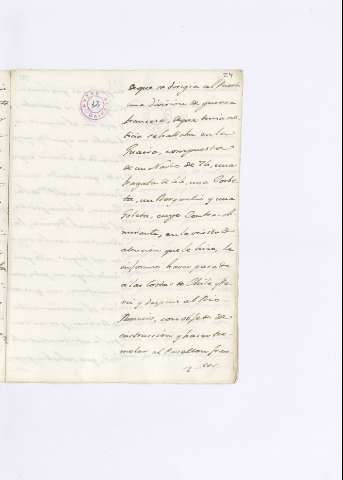 24
12
de que se dirigia al Puerto
una division de guerra
francesa, de que tenia no-
ticia se hallaba en la
Guaira, compuesta
de un Navio de 74, una
fragata de 44, una Corbe-
ta, un Bergantin y una
Goleta, cuyo Contra-al-
mirante, en la visita de
atencion que le hizo, le
informó haver pasado
a las Costas de Chile, Pe-
rú y despues al Rio-
Janeiro, con objeto de
instruccion y hacer tre-
molar el Pavellon fran-